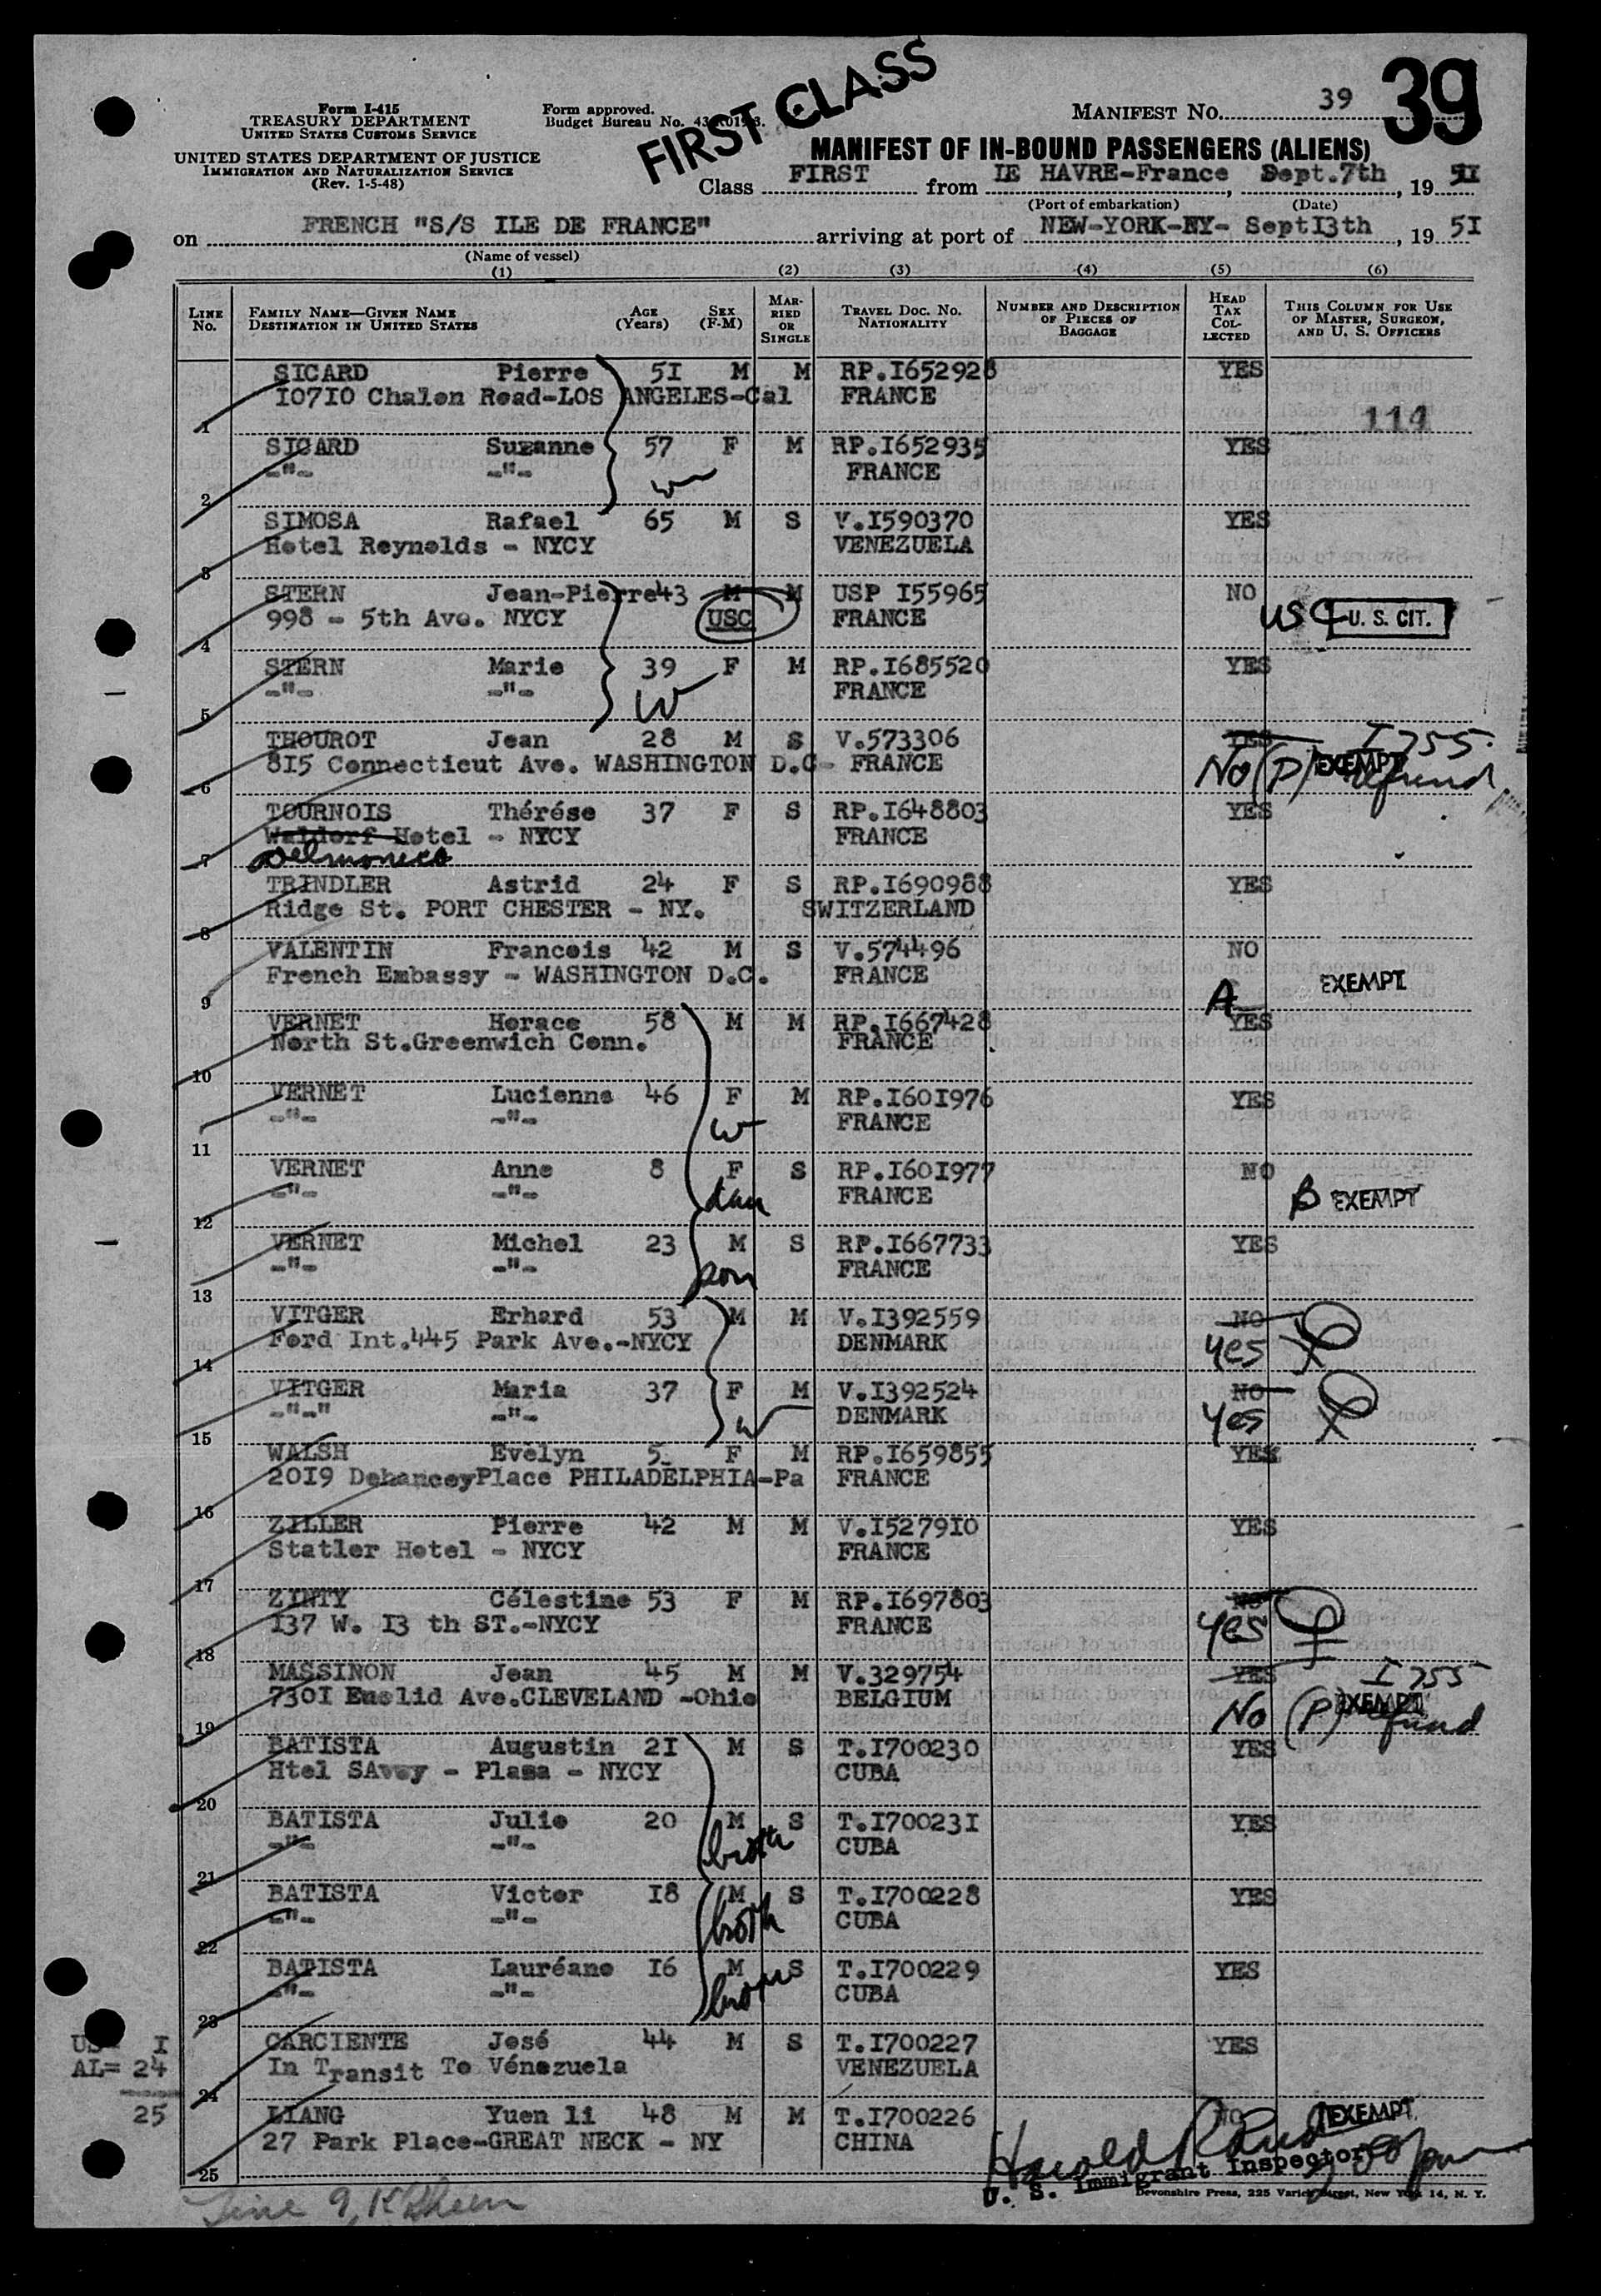 FIRST CLASS
39
Form I-415
TREASURY DEPARTMENT
UNITED STATES CUSTOMS SERVICE
UNITED STATES DEPARTMENT OF JUSTICE
IMMIGRATION AND NATURALIZATION SERVICE
(Rev. 1-5-48)
Form approved.
Budget Bureau No.
MANIFEST NO. 39
MANIFEST OF IN-BOUND PASSENGERS (ALIENS)
Class FIRST from LE HAVRE-France, Sept.7th, 19 51
(Port of embarkation) (Date)
on FRENCH "S/S ILE DE FRANCE" arriving at port of NEW-YORK-NY- Sept I3th, 19 5I
(Name of vessel)
(1) (2) (3) (4) (5) (6)
LINE No. FAMILY NAME—GIVEN NAME DESTINATION IN UNITED STATES AGE (Years) SEX (F-M) MARRIED OR SINGLE TRAVEL DOC. NO. NATIONALITY NUMBER AND DESCRIPTION OF PIECES OF BAGGAGE HEAD TAX COLLECTED THIS COLUMN FOR USE OF MASTER, SURGEON, AND U. S. OFFICERS
SICARD Pierre 5I M M RP.I652928 YES
I07I0 Chalon Road-LOS ANGELES-Cal FRANCE
1 114
SICARD Suzanne 57 F M RP.I652935 YES
-"- -"- w FRANCE
2
SIMOSA Rafael 65 M S V.I590370 YES
Hotel Reynolds - NYCY VENEZUELA
3
STERN Jean-Pierre 43 M M USP I55965 NO
998 - 5th Ave. NYCY USC FRANCE USC U. S. CIT.
4
STERN Marie 39 F M RP.I685520 YES
-"- -"- W FRANCE
5
THOUROT Jean 28 M S V.573306 YES I 755
8I5 Connecticut Ave. WASHINGTON D.C- FRANCE No (P) EXEMPT refund
6
TOURNOIS Thérése 37 F S RP.I648803 YES
Waldorf Hotel - NYCY FRANCE
7 Delmonico
TRINDLER Astrid 24 F S RP.I690988 YES
Ridge St. PORT CHESTER - NY. SWITZERLAND
8
VALENTIN Francois 42 M S V.574496 NO
French Embassy - WASHINGTON D.C. FRANCE A EXEMPT
9
VERNET Horace 58 M M RP.I667428 YES
North St.Greenwich Conn. FRANCE
10
VERNET Lucienne 46 F M RP.I60I976 YES
-"- -"- w FRANCE
11
VERNET Anne 8 F S RP.I60I977 NO
-"- -"- dau FRANCE B EXEMPT
12
VERNET Michel 23 M S RP.I667733 YES
-"- -"- son FRANCE
13
VITGER Erhard 53 M M V.I392559 NO
Ford Int.445 Park Ave.-NYCY DENMARK yes
14
VITGER Maria 37 F M V.I392524 NO
-"-" -"- w DENMARK yes
15
WALSH Evelyn 5 F M RP.I659855 YES
20I9 Delancey Place PHILADELPHIA-Pa FRANCE
16
ZILLER Pierre 42 M M V.I5279I0 YES
Statler Hotel - NYCY FRANCE
17
ZINTY Célestine 53 F M RP.I697803 NO
I37 W. I3 th ST.-NYCY FRANCE yes
18
MASSINON Jean 45 M M V.329754 YES I 755
730I Euclid Ave.CLEVELAND -Ohio BELGIUM No (P) EXEMPT refund
19
BATISTA Augustin 2I M S T.I700230 YES
Htel SAvoy - Plaza - NYCY CUBA
20
BATISTA Julio 20 M S T.I70023I YES
-"- -"- broth CUBA
21
BATISTA Victor I8 M S T.I700228 YES
-"- -"- broth CUBA
22
BATISTA Lauréano I6 M S T.I700229 YES
-"- -"- CUBA
23
CARCIENTE José 44 M S T.I700227 YES
In Transit To Vénezuela VENEZUELA
24
LIANG Yuen li 48 M M T.I700226 NO EXEMPT
27 Park Place-GREAT NECK - NY CHINA
25
US= I
AL= 24
25
Harold
U. S. Immigrant Inspector
Devonshire Press, 225 Varick Street, New York 14, N. Y.
Line 9,